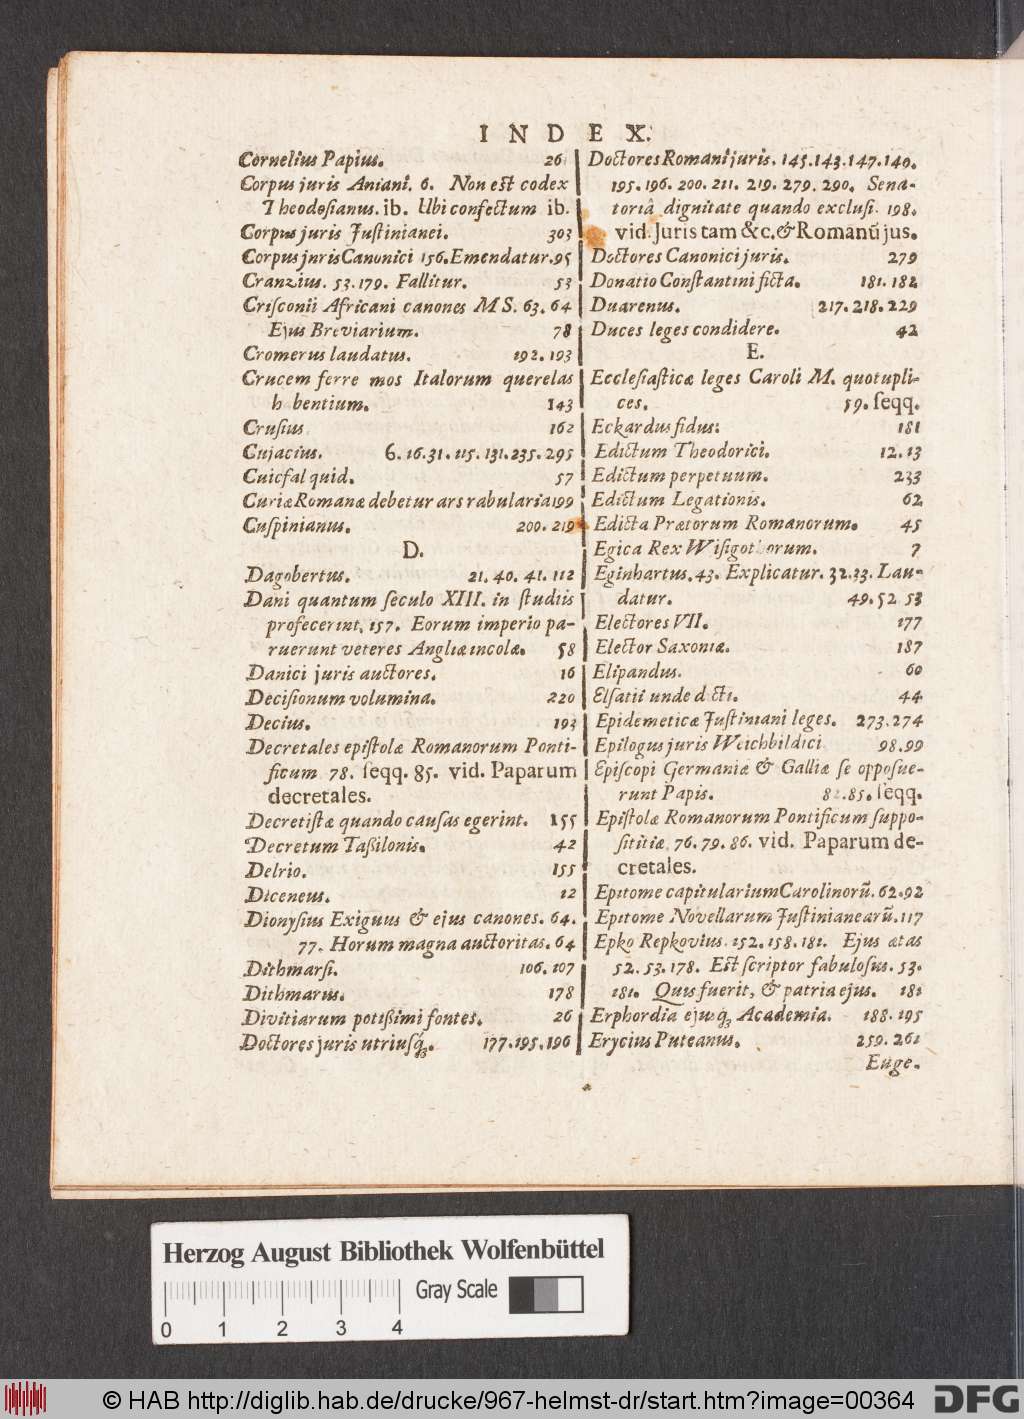 INDEX.
Cornelius Papius. 26
Corpus juris Aniani. 6. Non est codex
Theodosianus. ib. Ubi confectum ib.
Corpus juris Justinianei. 303
Corpus jnris Canonici 156. Emendatur. 95
Cranzius. 53. 179. Fallitur. 53
Crisconii Africani canones MS. 63. 64
Ejus Breviarium. 78
Cromerus laudatus. 192. 193
Crucem ferre mos Italorum querelas
h bentium. 143
Crusius 162
Cujacius. 6. 16. 31. 115. 131. 235. 295
Cuicfal quid. 57
Curiæ Romanæ debetur ars rabularia 199
Cuspinianus. 200. 219
D.
Dagobertus. 21. 40. 41. 112
Dani quantum seculo XIII. in studiis
profecerint, 157. Eorum imperio pa-
ruerunt veteres Angliæ incolæ. 58
Danici juris auctores. 16
Decisionum volumina. 220
Decius. 193
Decretales epistolæ Romanorum Ponti-
ficum 78. seqq. 85. vid. Paparum
decretales.
Decretistæ quando causas egerint. 155
Decretum Taßilonis. 42
Delrio. 155
Diceneus. 12
Dionysius Exiguus & ejus canones. 64.
77. Horum magna auctoritas. 64
Dithmarsi. 106. 107
Dithmarus. 178
Divitiarum potißimi fontes. 26
Doctores juris utriusq́ꝫ. 177. 195. 196
Doctores Romani juris. 145. 143. 147. 140.
195. 196. 200. 211. 219. 279. 290. Sena-
toriâ dignitate quando exclusi. 198.
vid. Juris tam &c. & Romanū jus.
Doctores Canonici juris. 279
Donatio Constantini ficta. 181. 182
Duarenus. 217. 218. 229
Duces leges condidere. 42
E.
Ecclesiasticæ leges Caroli M. quotupli-
ces. 59. seqq.
Eckardus fidus: 181
Edictum Theodorici. 12. 13
Edictum perpetuum. 233
Edictum Legationis. 62
Edicta Prætorum Romanorum. 45
Egica Rex Wisigothorum. 7
Eginhartus. 43. Explicatur. 32. 33. Lau-
datur. 49. 52 53
Electores VII. 177
Elector Saxoniæ. 187
Elipandus. 60
Elsatii unde dicti. 44
Epidemeticæ Justiniani leges. 273. 274
Epilogus juris Weichbildici 98. 99
Episcopi Germaniæ & Galliæ se opposue-
runt Papis. 82. 85. seqq.
Epistolæ Romanorum Pontificum suppo-
sititiæ 76. 79. 86. vid. Paparum de-
cretales.
Epitome capitularium Carolinorū. 62. 92
Epitome Novellarum Justinianearū. 117
Epko Repkovius. 152. 158. 181. Ejus ætas
52. 53. 178. Est scriptor fabulosus. 53.
181. Quis fuerit, & patria ejus. 181
Erphordia ejusq́ꝫ Academia. 188. 195
Erycius Puteanus. 259. 261
Euge.
Herzog August Bibliothek Wolfenbüttel
Gray Scale
0 1 2 3 4
© HAB http://diglib.hab.de/drucke/967-helmst-dr/start.htm?image=00364
DFG